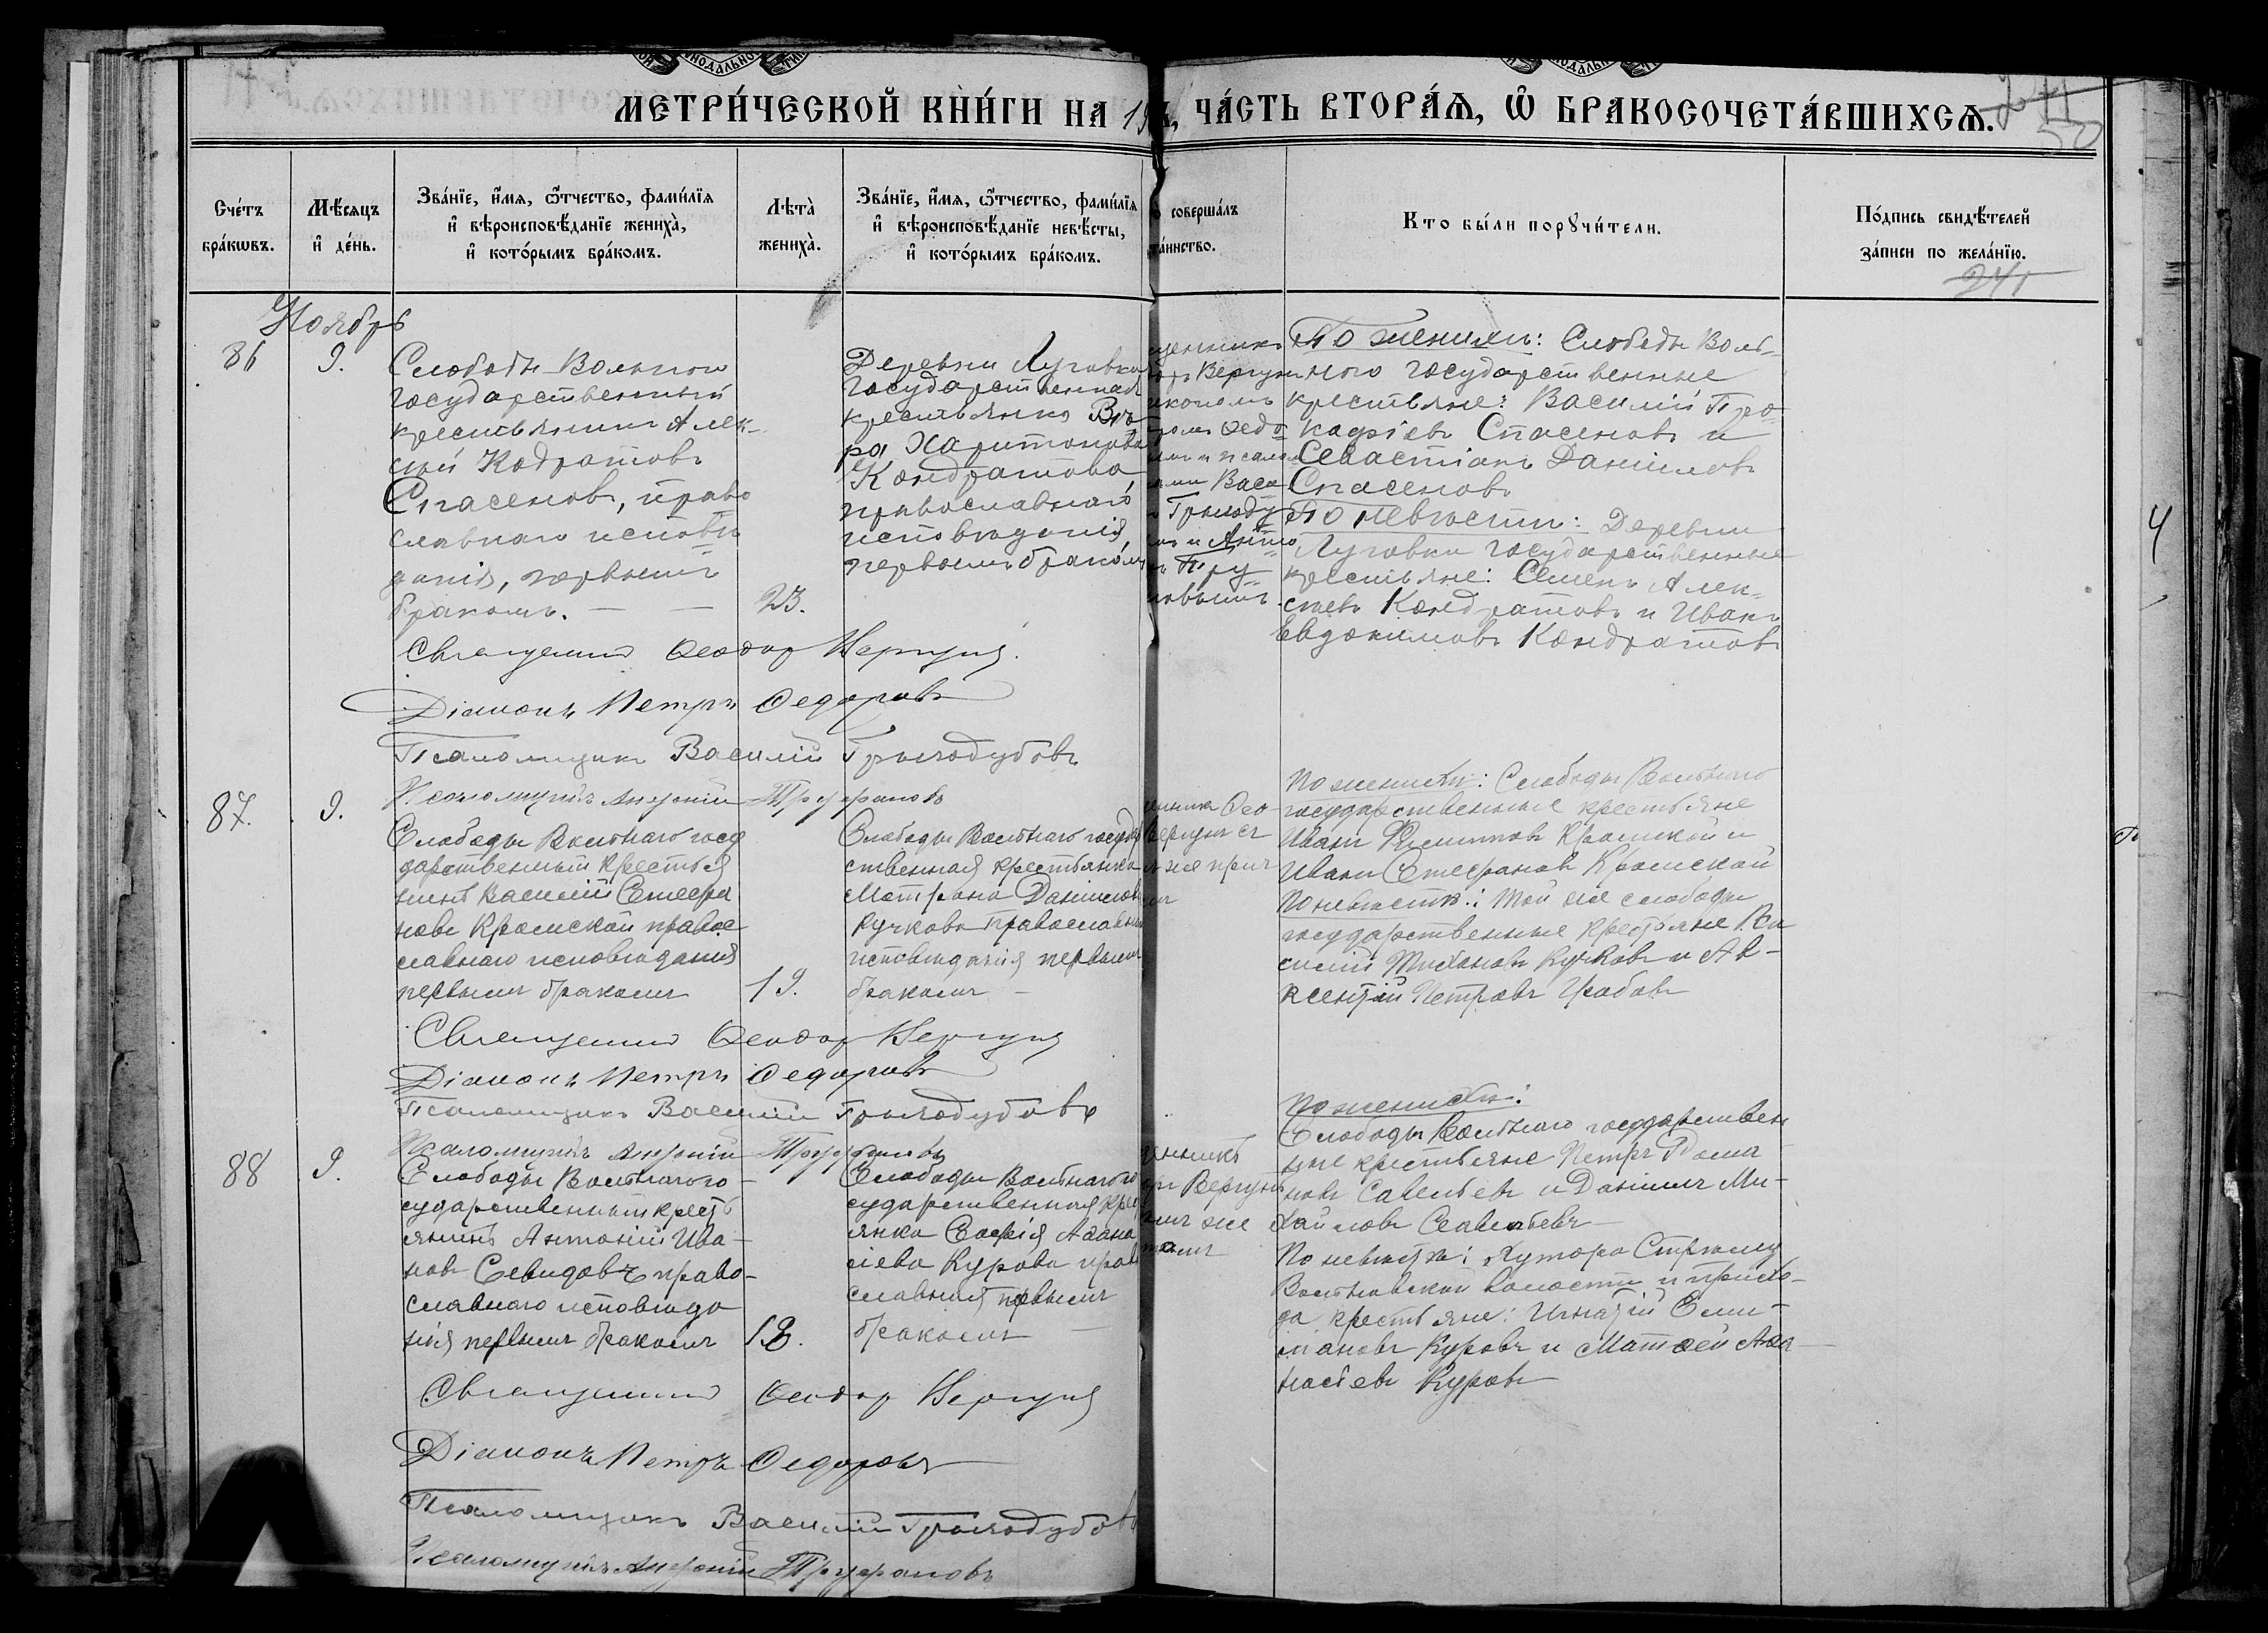 МЕТРИ́ЧЕСКОЙ КНИ́ГИ НА 19
, ЧА́СТЬ ВТОРА́Я, Ѡ БРАКОСОЧЕТА́ВШИХСѦ.
50
Сче́тъ бра́кѡвъ.
Мѣ́сѧцъ и҆ де́нь.
Зва́нїе, и҆́мѧ, ѻ҆́тчество, фамѝлїѧ
и҆ вѣроисповѣ́данїе жениха̀,
и҆ кото́рымъ бра́комъ.
Лѣта̀ жениха̀.
Зва́нїе, и҆́мѧ, ѻ҆́тчество, фамѝлїѧ
и҆ вѣроисповѣ́данїе невѣ́сты,
и҆ кото́рымъ бра́комъ.
соверша́лъ
та́инство.
Кто бы́ли порꙋчи́тели.
По́дпись свидѣ́телей
за́писи по жела́нїю.
241
Ноябрь
86
9.
Слободы Вольного
государственный
крестьянинъ Алек-
сѣй Кодратовъ
Спасеновъ, право
славнаго исповѣ
данія, первымъ
бракомъ. — —
23.
Деревни Луговки
государственная
крестьянка Вѣ
ра Харитонова
Кондратова
православнаго
исповѣданія,
первымъ бракомъ
Вергун
кономъ
Ѳедо
и псалом
Васи
Грызоду
и Анто
Тру
новымъ.
По женихѣ: Слободы Воль-
ного государственные
крестьяне: Василій Про-
кофіевъ Спасеновъ и
Севастіанъ Даніиловъ
Спасеновъ
По невѣсти: Деревни
Луговки государственные
крестьяне: Семенъ Алек-
сѣевъ Кондратовъ и Иванъ
Евдокимовъ Кондратовъ
Священник Ѳеодор Вергунъ
Діаконъ Петръ Ѳедоровъ
Псаломщикъ Василій Грызодубовъ
Псаломщикъ Антоній Труфановъ
87.
9.
Слободы Вольнаго госу
дарственный крестья
нинъ Василій Стефа
новъ Крамской правос
славнаго исповѣданія
первымъ бракомъ
19.
Слободы Вольнаго госуд
ственная крестьянка
Матрона Даніилов
Кучкова православн
исповѣданія первымъ
бракомъ —
Ѳео-
Вергунъ съ
же прич
По женихѣ: Слободы Вольнаго
государственные крестьяне
Иванъ Филиповъ Крамской и
Иванъ Стефановъ Крамской
По невѣстѣ: той же слободы
государственные крестьяне Ва
силій Тихоновъ Кучковъ и Ав-
ксентій Петровъ Грабовъ
Священник Ѳеодор Вергунъ
Діаконъ Петръ Ѳедоровъ
Псаломщикъ Василій Грызодубовъ
Псаломщикъ Антоній Труфановъ
88
9.
Слободы Вольнаго го-
сударственный кресть
янинъ Антоній Ива-
новъ Севидовъ право-
славнаго исповѣда
нія первымъ бракомъ
18.
Слободы Вольнаго го
сударственная крес
янка Софія Аѳана
сіева Курова прав
славныя первымъ
бракомъ —
Вергунъ
же
По женихѣ:
Слободы Вольнаго государствен
ные крестьяне Петръ Рома
новъ Савельевъ и Даніилъ Ми-
хайловъ Савельевъ
По невѣстѣ: Хутора
Вольновской волости и прихо-
да крестьяне: Игнатій Емил-
іановъ Куровъ и Матѳей Аѳа-
насьевъ Куровъ
Священник Ѳеодор Вергунъ
Діаконъ Петръ Ѳедоровъ
Псаломщикъ Василій Грызодубовъ
Псаломщикъ Антоній Труфановъ
4